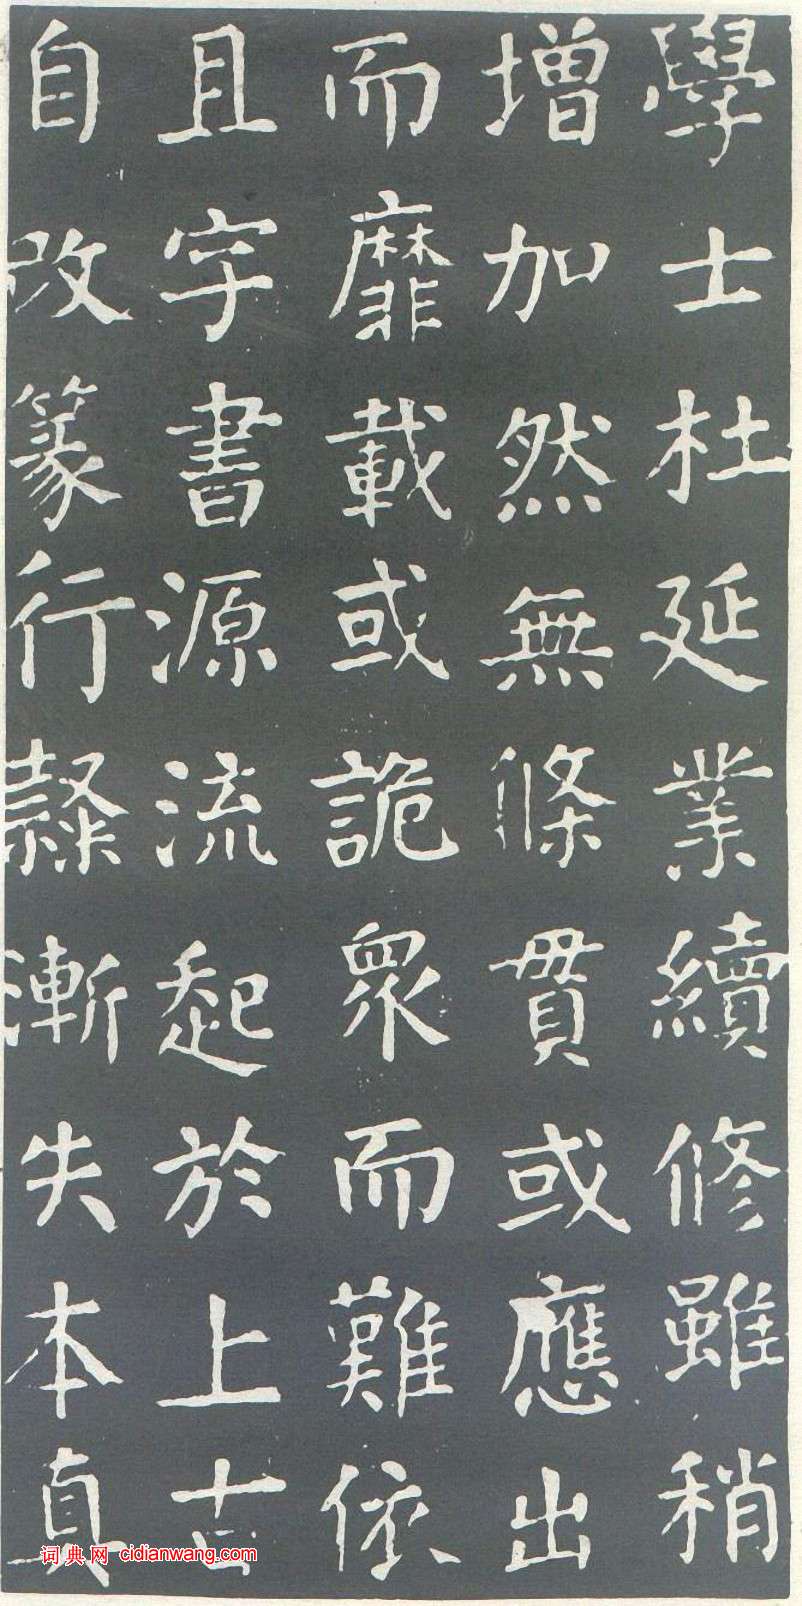 學士杜延業續修雖稍
增加然無條貫或應出
而靡載或詭眾而難依
且字書源流起於上古
自改篆行隸漸失本真
词典网 cidianwang.com